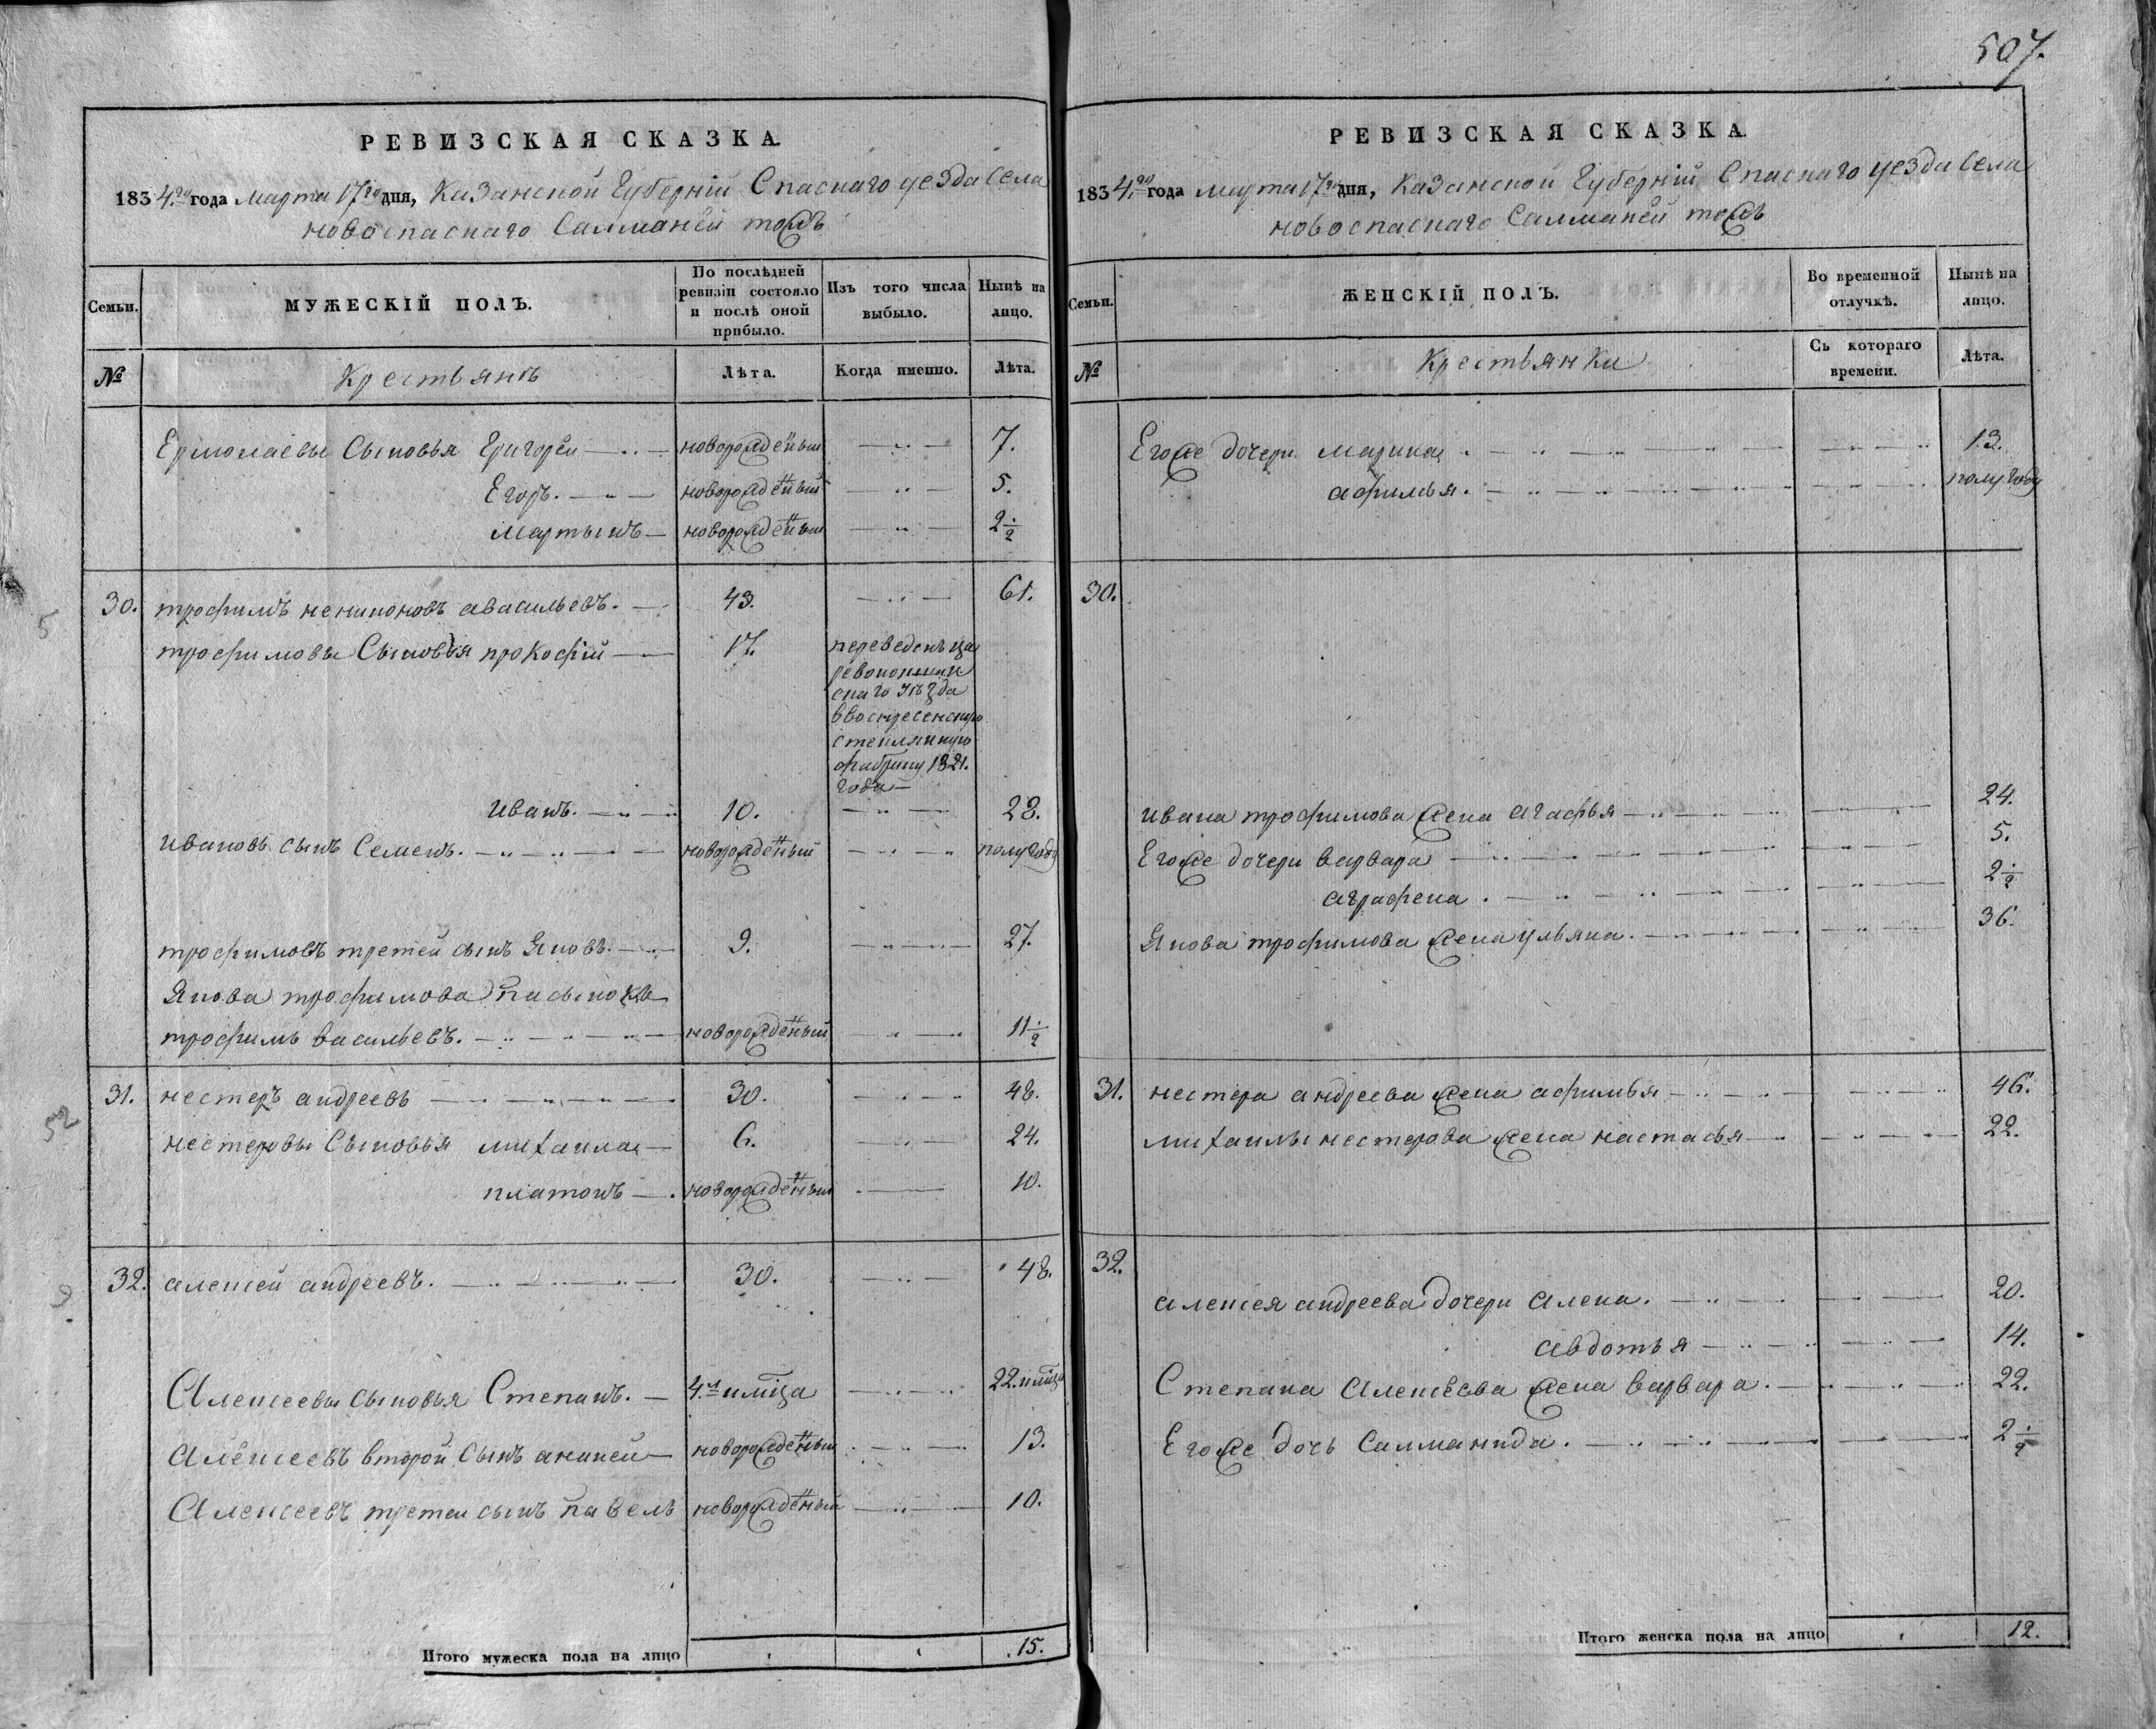 507.
РЕВИЗСКАЯ СКАЗКА.
1834го года марта 17го дня, Казанской Губерніи Спаскаго уезда села
новоспаскаго Салманы тожъ
Семьи.
МУЖЕСКІЙ ПОЛЪ.
По послѣдней ревизіи состояло и послѣ оной прибыло.
Изъ того числа выбыло.
Нынѣ на лицо.
№
Крестьянъ
Лѣта.
Когда именно.
Лѣта.
Ермолаевы Сыновья Григореи новорожденыи 7.
Егоръ. новорожденый 5.
мартынъ новорожденыи 2 1/2
30. трофимъ авасильевъ. 43. 61.
трофимовы Сыновья прокофій 17. переведенъ ца
ревококшай
скаго уѣзда
ввоскресенскую
стеклянную
фабрику 1821.
года
иванъ. 10. 28.
ивановъ сынъ Семенъ. новорожденый полугоду
трофимовъ третей сынъ Яковъ. 9. 27.
Якова трофимова пасынокъ
трофимъ васильевъ. новорожденый 11 1/2
31. нестеръ андреевъ 30. 48.
нестеровы Сыновья михаила 6. 24.
платонъ новорожденыи 10.
32. алексей андреевъ. 30. 48.
Алексеевы сыновья Степанъ. 4. имца 22. имца
Алексеевъ второй сынъ ананеи новорожденыи 13.
Алексеевъ третеи сынъ павелъ новорожденый 10.
Итого мужеска пола на лицо 15.
РЕВИЗСКАЯ СКАЗКА.
1834го года марта 17го дня, Казанской Губерніи Спаскаго уезда села
новоспаскаго Салманы тожъ
Семьи.
ЖЕНСКІЙ ПОЛЪ.
Во временной отлучкѣ.
Нынѣ на лицо.
№
Крестьянки
Съ котораго времени.
Лѣта.
Егоже дочери марина 13.
афимья. полугоду
30.
ивана трофимова жена агафья 24.
Егоже дочери варвара 5.
аграфена. 2 1/2
Якова трофимова жена ульяна. 36.
31. нестера андреева жена афимья 46.
михаилы нестерова жена настасья 22.
32.
алексея андреева дочери алена. 20.
авдотья 14.
Степана Алексеева жена варвара. 22.
Егоже дочь Салманида. 2 1/2
Итого женска пола на лицо 12.